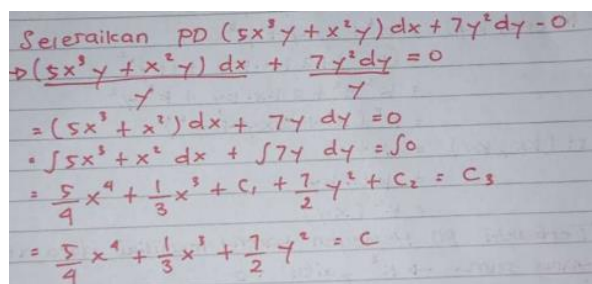 Seleraikan PD (5x³y + x²y) dx + 7y² dy - 0
→ (5x³y + x²y) dx / y + 7y² dy / y = 0
= (5x³ + x²) dx + 7y dy = 0
= ∫5x³ + x² dx + ∫7y dy = ∫0
= 5/4 x⁴ + 1/3 x³ + C₁ + 7/2 y² + C₂ = C₃
= 5/4 x⁴ + 1/3 x³ + 7/2 y² = C